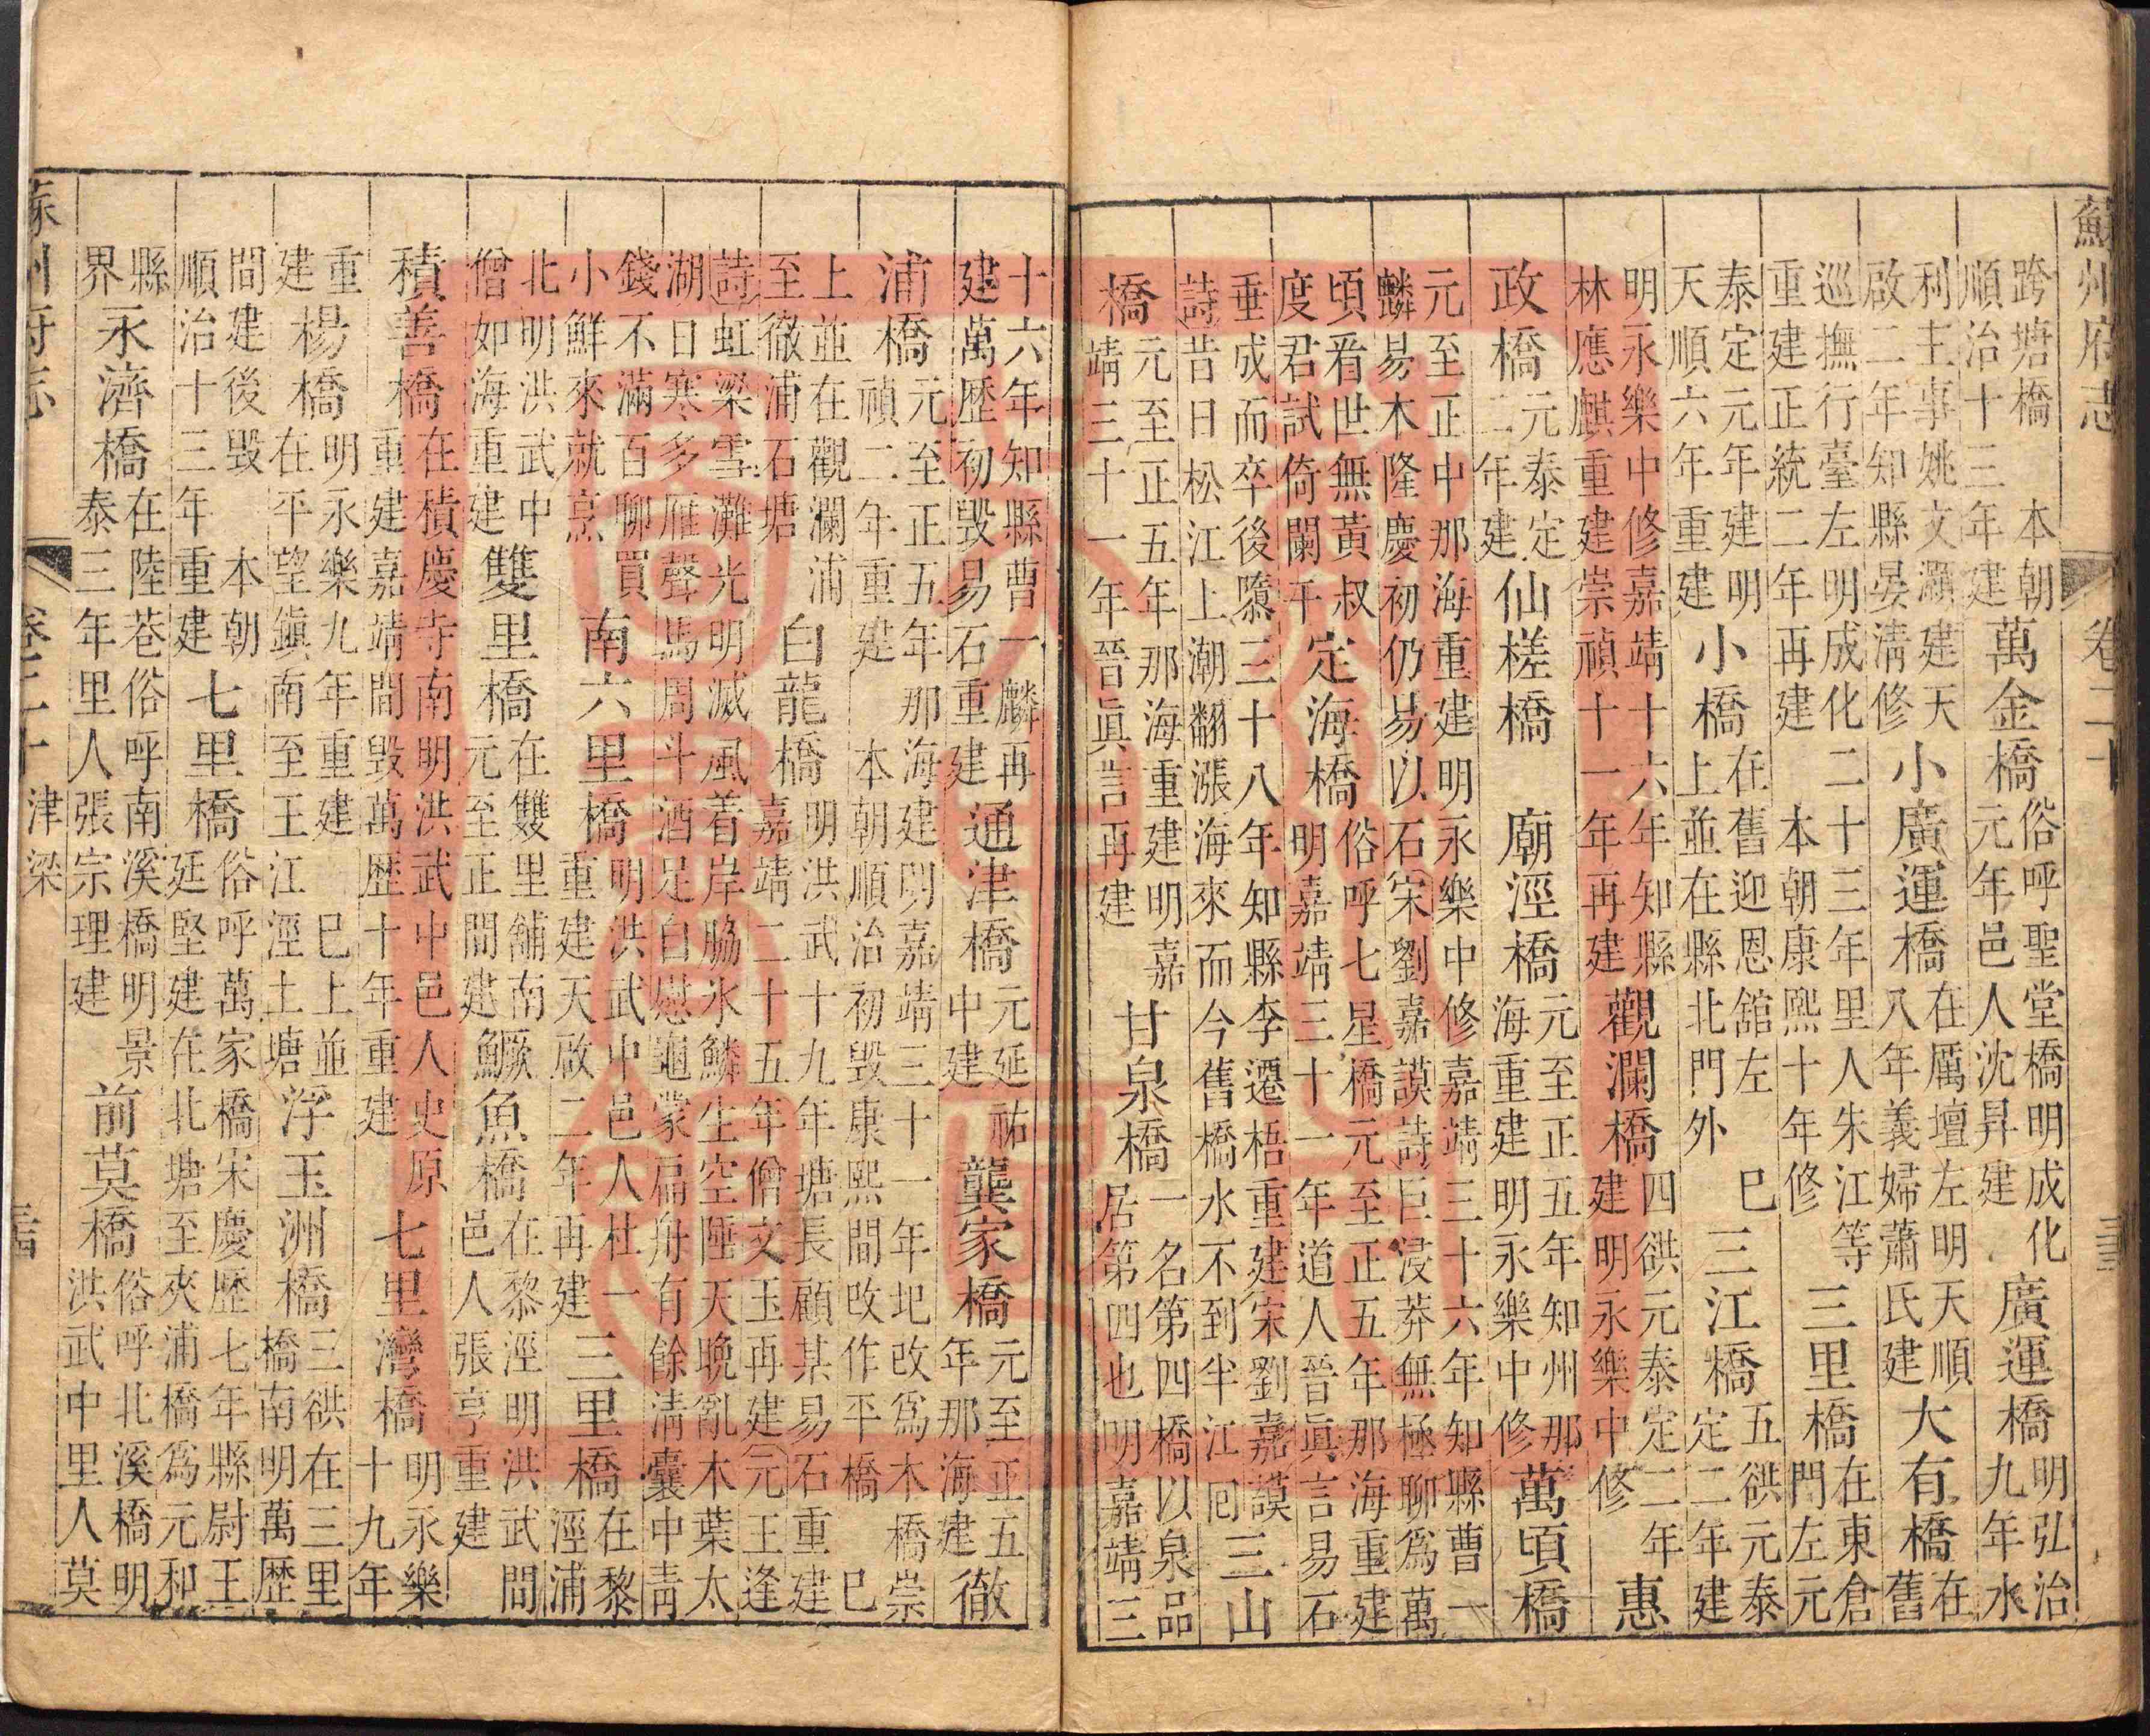 蘇州府志 卷二十
跨塘橋 本朝順治十三年建 萬金橋 俗呼聖堂橋明成化元年邑人沈昇建 廣運橋 明弘治九年水
利主事姚文灝建天啟二年知縣晏淸修 小廣運橋 在厲壇左明天順八年義婦蕭氏建 大有橋 在舊
巡撫行臺左明成化二十三年里人朱江等重建正統二年再建 本朝康熙十年修 三里橋 在東倉門左元
泰定元年建明天順六年重建 小橋 在舊迎恩舘左 巳上並在縣北門外 三江橋 五谼元泰定二年建
明永樂中修嘉靖十六年知縣林應麒重建崇禎十一年再建 觀瀾橋 四谼元泰定二年建明永樂中修 惠
政橋 元泰定二年建 仙槎橋 廟涇橋 元至正五年知州那海重建明永樂中修 萬頃橋
元至正中那海重建明永樂中修嘉靖三十六年知縣曹一麟易木隆慶初仍易以石宋劉嘉謨詩巨浸莽無極聊爲萬
頃看世無黃叔度君試倚闌干 定海橋 俗呼七星橋元至正五年那海重建明嘉靖三十一年道人晉眞言易石
垂成而卒後隳三十八年知縣李遷梧重建宋劉嘉謨詩昔日松江上潮翻漲海來而今舊橋水不到半江囘 三山
橋 元至正五年那海重建明嘉靖三十一年晉眞言再建 甘泉橋 一名第四橋以泉品居第四也明嘉靖三
十六年知縣曹一麟再建萬歷初毀易石重建 通津橋 元延祐中建 龔家橋 元至正五年那海建 徹
浦橋 元至正五年那海建明嘉靖三十一年圯改爲木橋崇禎二年重建 本朝順治初毀康熙間改作平橋 巳
上並在觀瀾浦至徹浦石塘 白龍橋 明洪武十九年塘長顧某易石重建嘉靖二十五年僧文玉再建元王逢
詩虹梁雪灘光明滅風着岸脇氷鱗生空陲天晚亂木葉太湖日寒多雁聲馬周斗酒足自慰龜蒙扁舟有餘淸囊中靑
錢不滿百聊買小鮮來就烹 南六里橋 明洪武中邑人杜一重建天啟二年再建 三里橋 在黎涇浦
北明洪武中僧如海重建 雙里橋 在雙里舖南元至正間建 鱖魚橋 在黎涇明洪武間邑人張亨重建
積善橋 在積慶寺南明洪武中邑人史原重建嘉靖間毀萬歷十年重建 七里灣橋 明永樂十九年
重建 楊橋 明永樂九年重建 巳上並在平望鎭南至王江涇土塘 浮玉洲橋 三谼在三里橋南明萬歷
間建後毀 本朝順治十三年重建 七里橋 俗呼萬家橋宋慶歷七年縣尉王延堅建在北塘至夾浦橋爲元和
縣界 永濟橋 在陸巷俗呼南溪橋明景泰三年里人張宗理建 前莫橋 俗呼北溪橋明洪武中里人莫
蘇州府志 卷二十 津梁